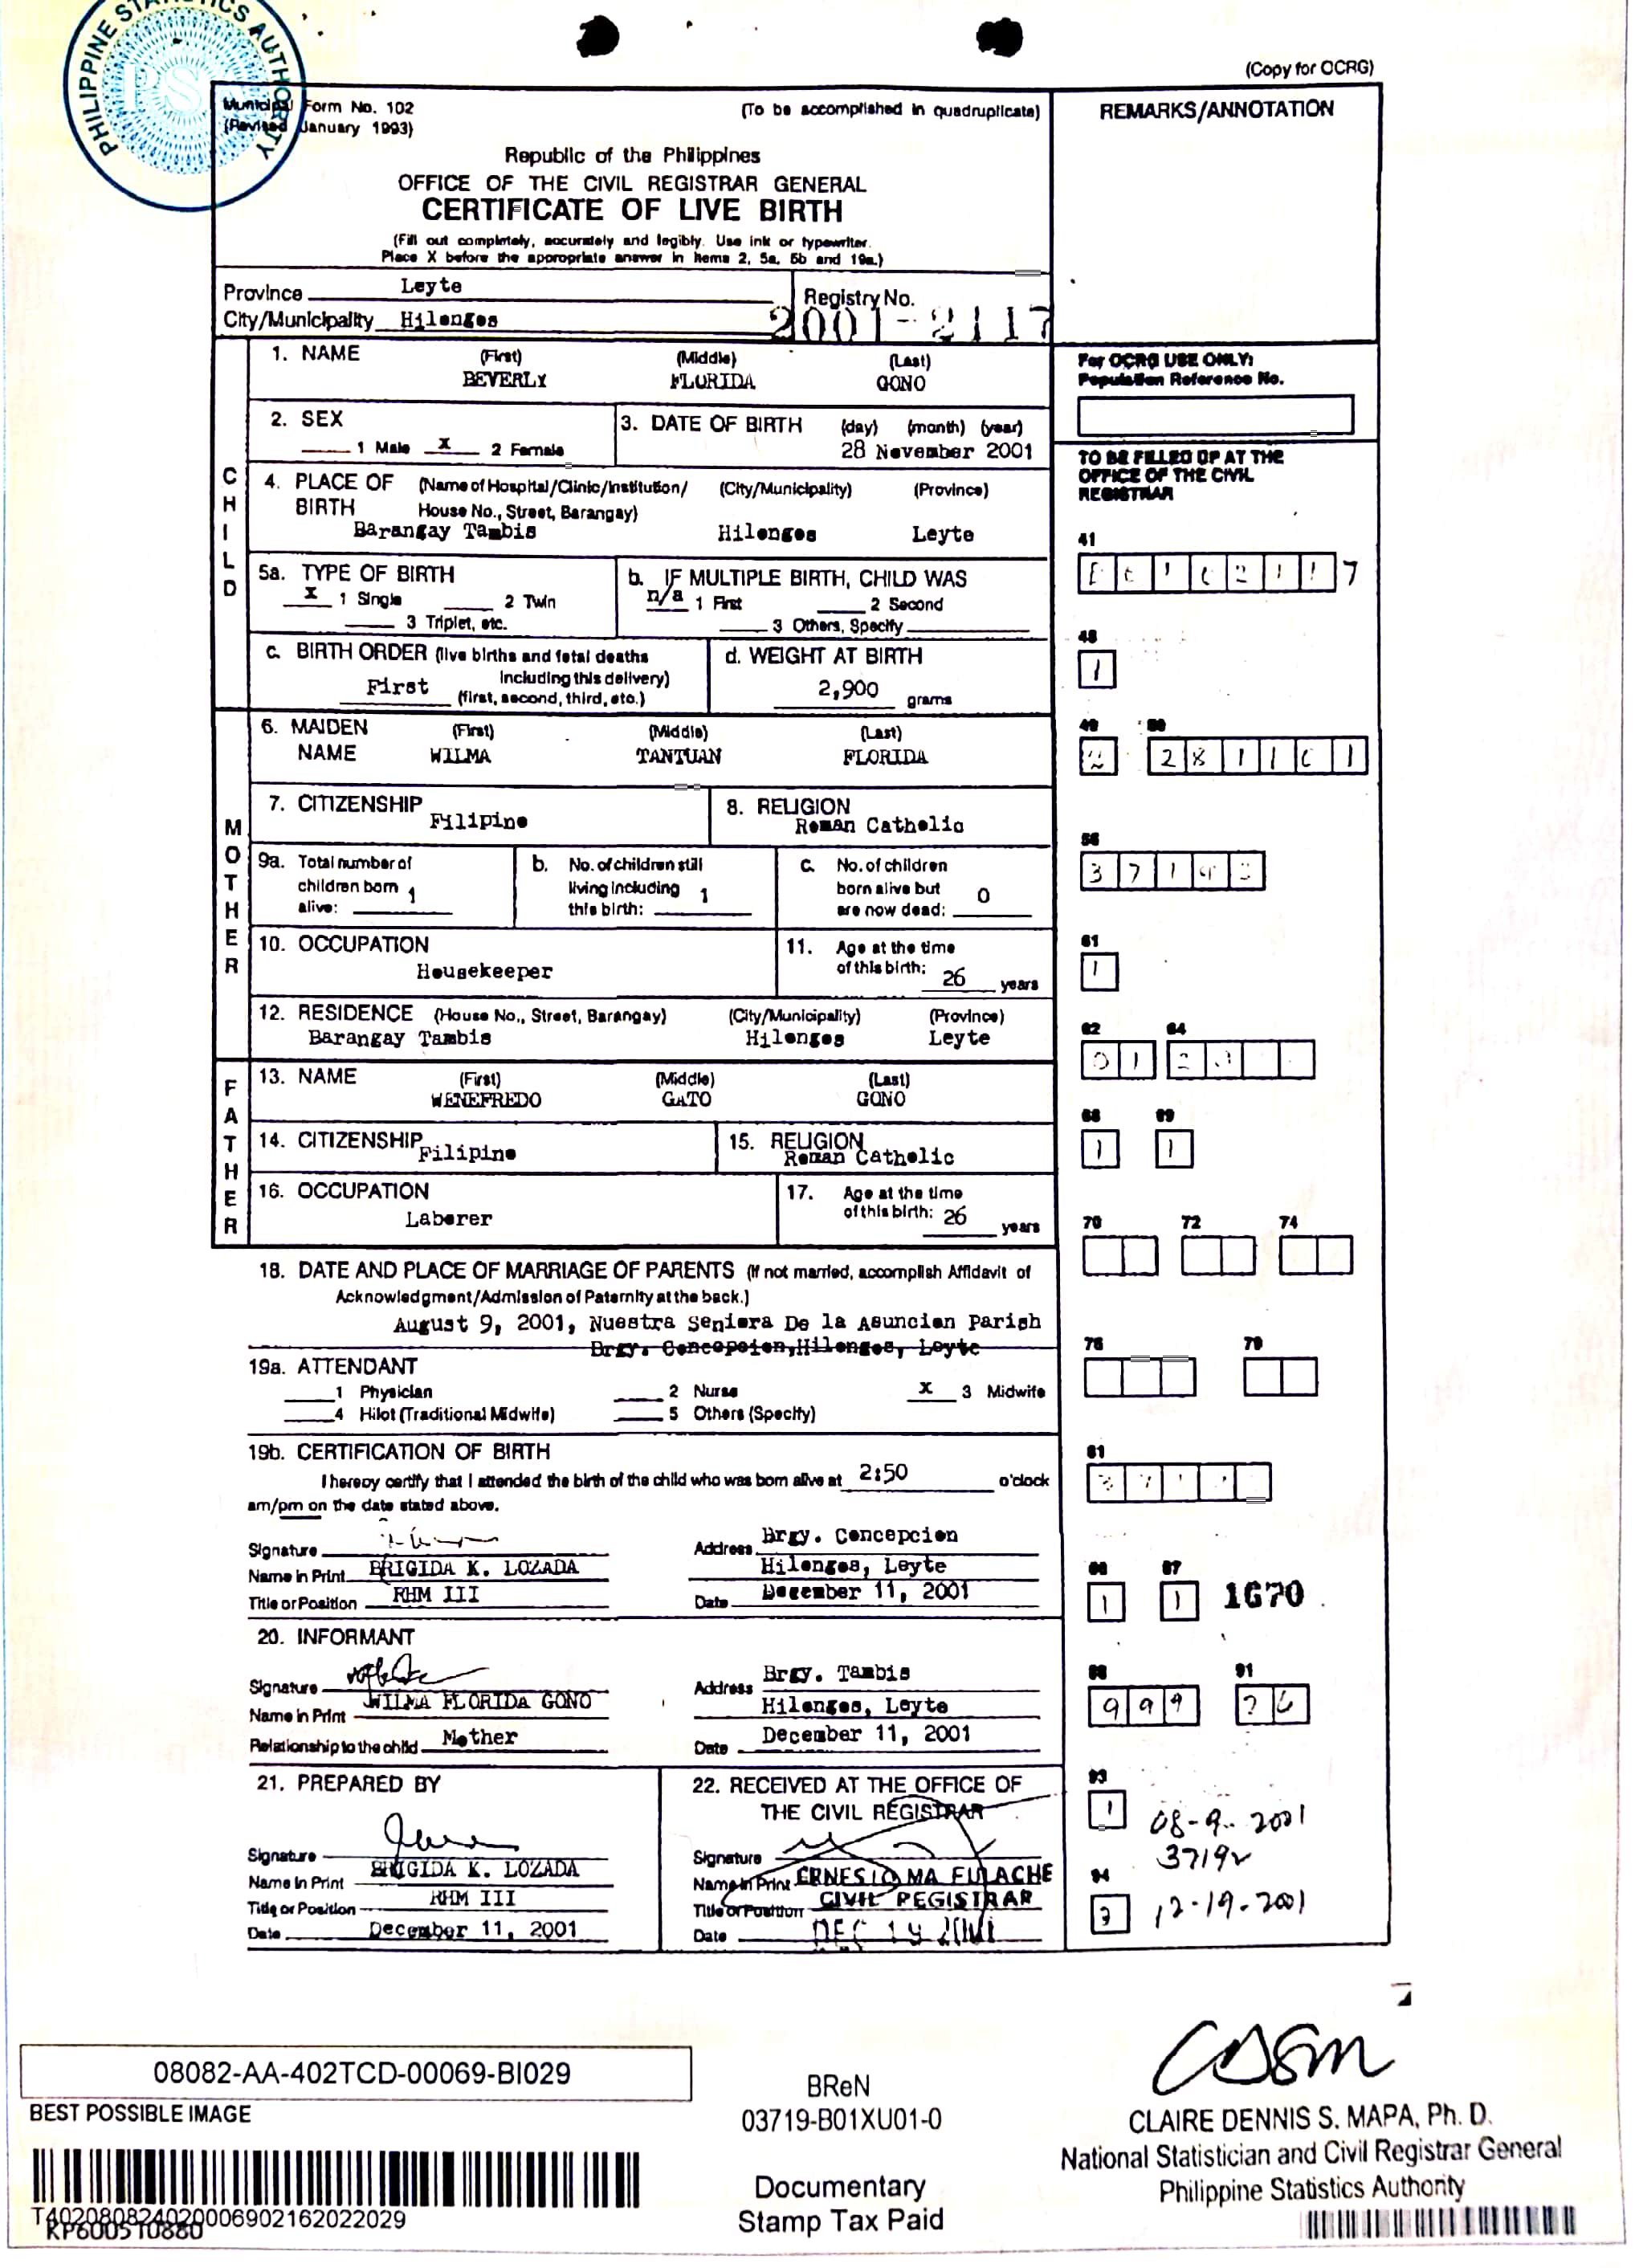 PHILIPPINE STATISTICS AUTHORITY
PSA
(Copy for OCRG)
Municipal Form No. 102
(Revised January 1993)
(To be accomplished in quadruplicate)
REMARKS/ANNOTATION
Republic of the Philippines
OFFICE OF THE CIVIL REGISTRAR GENERAL
CERTIFICATE OF LIVE BIRTH
(Fill out completely, accurately and legibly. Use ink or typewriter.
Place X before the appropriate answer in items 2, 5a, 5b and 19a.)
Province Leyte
City/Municipality Hilongos
Registry No.
2001-2117
CHILD
1. NAME (First) (Middle) (Last)
BEVERLY FLORIDA GONO
For OCRG USE ONLY:
Population Reference No.
2. SEX
1 Male X 2 Female
3. DATE OF BIRTH (day) (month) (year)
28 November 2001
TO BE FILLED UP AT THE
OFFICE OF THE CIVIL
REGISTRAR
4. PLACE OF BIRTH (Name of Hospital/Clinic/Institution/ (City/Municipality) (Province)
House No., Street, Barangay)
Barangay Tambis Hilongos Leyte
41
5a. TYPE OF BIRTH
X 1 Single 2 Twin
3 Triplet, etc.
b. IF MULTIPLE BIRTH, CHILD WAS
n/a 1 First 2 Second
3 Others, Specify
c. BIRTH ORDER (live births and fetal deaths
including this delivery)
First (first, second, third, etc.)
d. WEIGHT AT BIRTH
2,900 grams
48
1
MOTHER
6. MAIDEN NAME (First) (Middle) (Last)
WILMA TANTUAN FLORIDA
49 50
2 281101
7. CITIZENSHIP
Filipino
8. RELIGION
Roman Catholic
9a. Total number of
children born
alive: 1
b. No. of children still
living including
this birth: 1
c. No. of children
born alive but
are now dead: 0
56
10. OCCUPATION
Housekeeper
11. Age at the time
of this birth: 26 years
61
1
12. RESIDENCE (House No., Street, Barangay) (City/Municipality) (Province)
Barangay Tambis Hilongos Leyte
62 64
01
FATHER
13. NAME (First) (Middle) (Last)
WENEFREDO GATO GONO
14. CITIZENSHIP
Filipino
15. RELIGION
Roman Catholic
68 69
1 1
16. OCCUPATION
Laborer
17. Age at the time
of this birth: 26 years
70 72 74
18. DATE AND PLACE OF MARRIAGE OF PARENTS (If not married, accomplish Affidavit of
Acknowledgment/Admission of Paternity at the back.)
August 9, 2001, Nuestra Seniora De la Asuncion Parish
Brgy. Concepcion, Hilongos, Leyte
76 79
19a. ATTENDANT
1 Physician 2 Nurse X 3 Midwife
4 Hilot (Traditional Midwife) 5 Others (Specify)
19b. CERTIFICATION OF BIRTH
I hereby certify that I attended the birth of the child who was born alive at 2:50 o'clock
am/pm on the date stated above.
81
Signature
Name in Print BRIGIDA K. LOZADA
Title or Position RHM III
Address Brgy. Concepcion
Hilongos, Leyte
Date December 11, 2001
86 87
1 1 1670
20. INFORMANT
Signature
Name in Print WILMA FLORIDA GONO
Relationship to the child Mother
Address Brgy. Tambis
Hilongos, Leyte
Date December 11, 2001
88 91
999 26
21. PREPARED BY
Signature
Name in Print BRIGIDA K. LOZADA
Title or Position RHM III
Date December 11, 2001
22. RECEIVED AT THE OFFICE OF
THE CIVIL REGISTRAR
Signature
Name in Print ERNESTO MA EULACHE
Title or Position CIVIL REGISTRAR
Date DEC 19 2001
93
1 08-9-2001
3719
94
12-19-2001
08082-AA-402TCD-00069-BI029
BEST POSSIBLE IMAGE
T402080824020006902162022029
KP600510880
BReN
03719-B01XU01-0
Documentary
Stamp Tax Paid
CLAIRE DENNIS S. MAPA, Ph. D.
National Statistician and Civil Registrar General
Philippine Statistics Authority